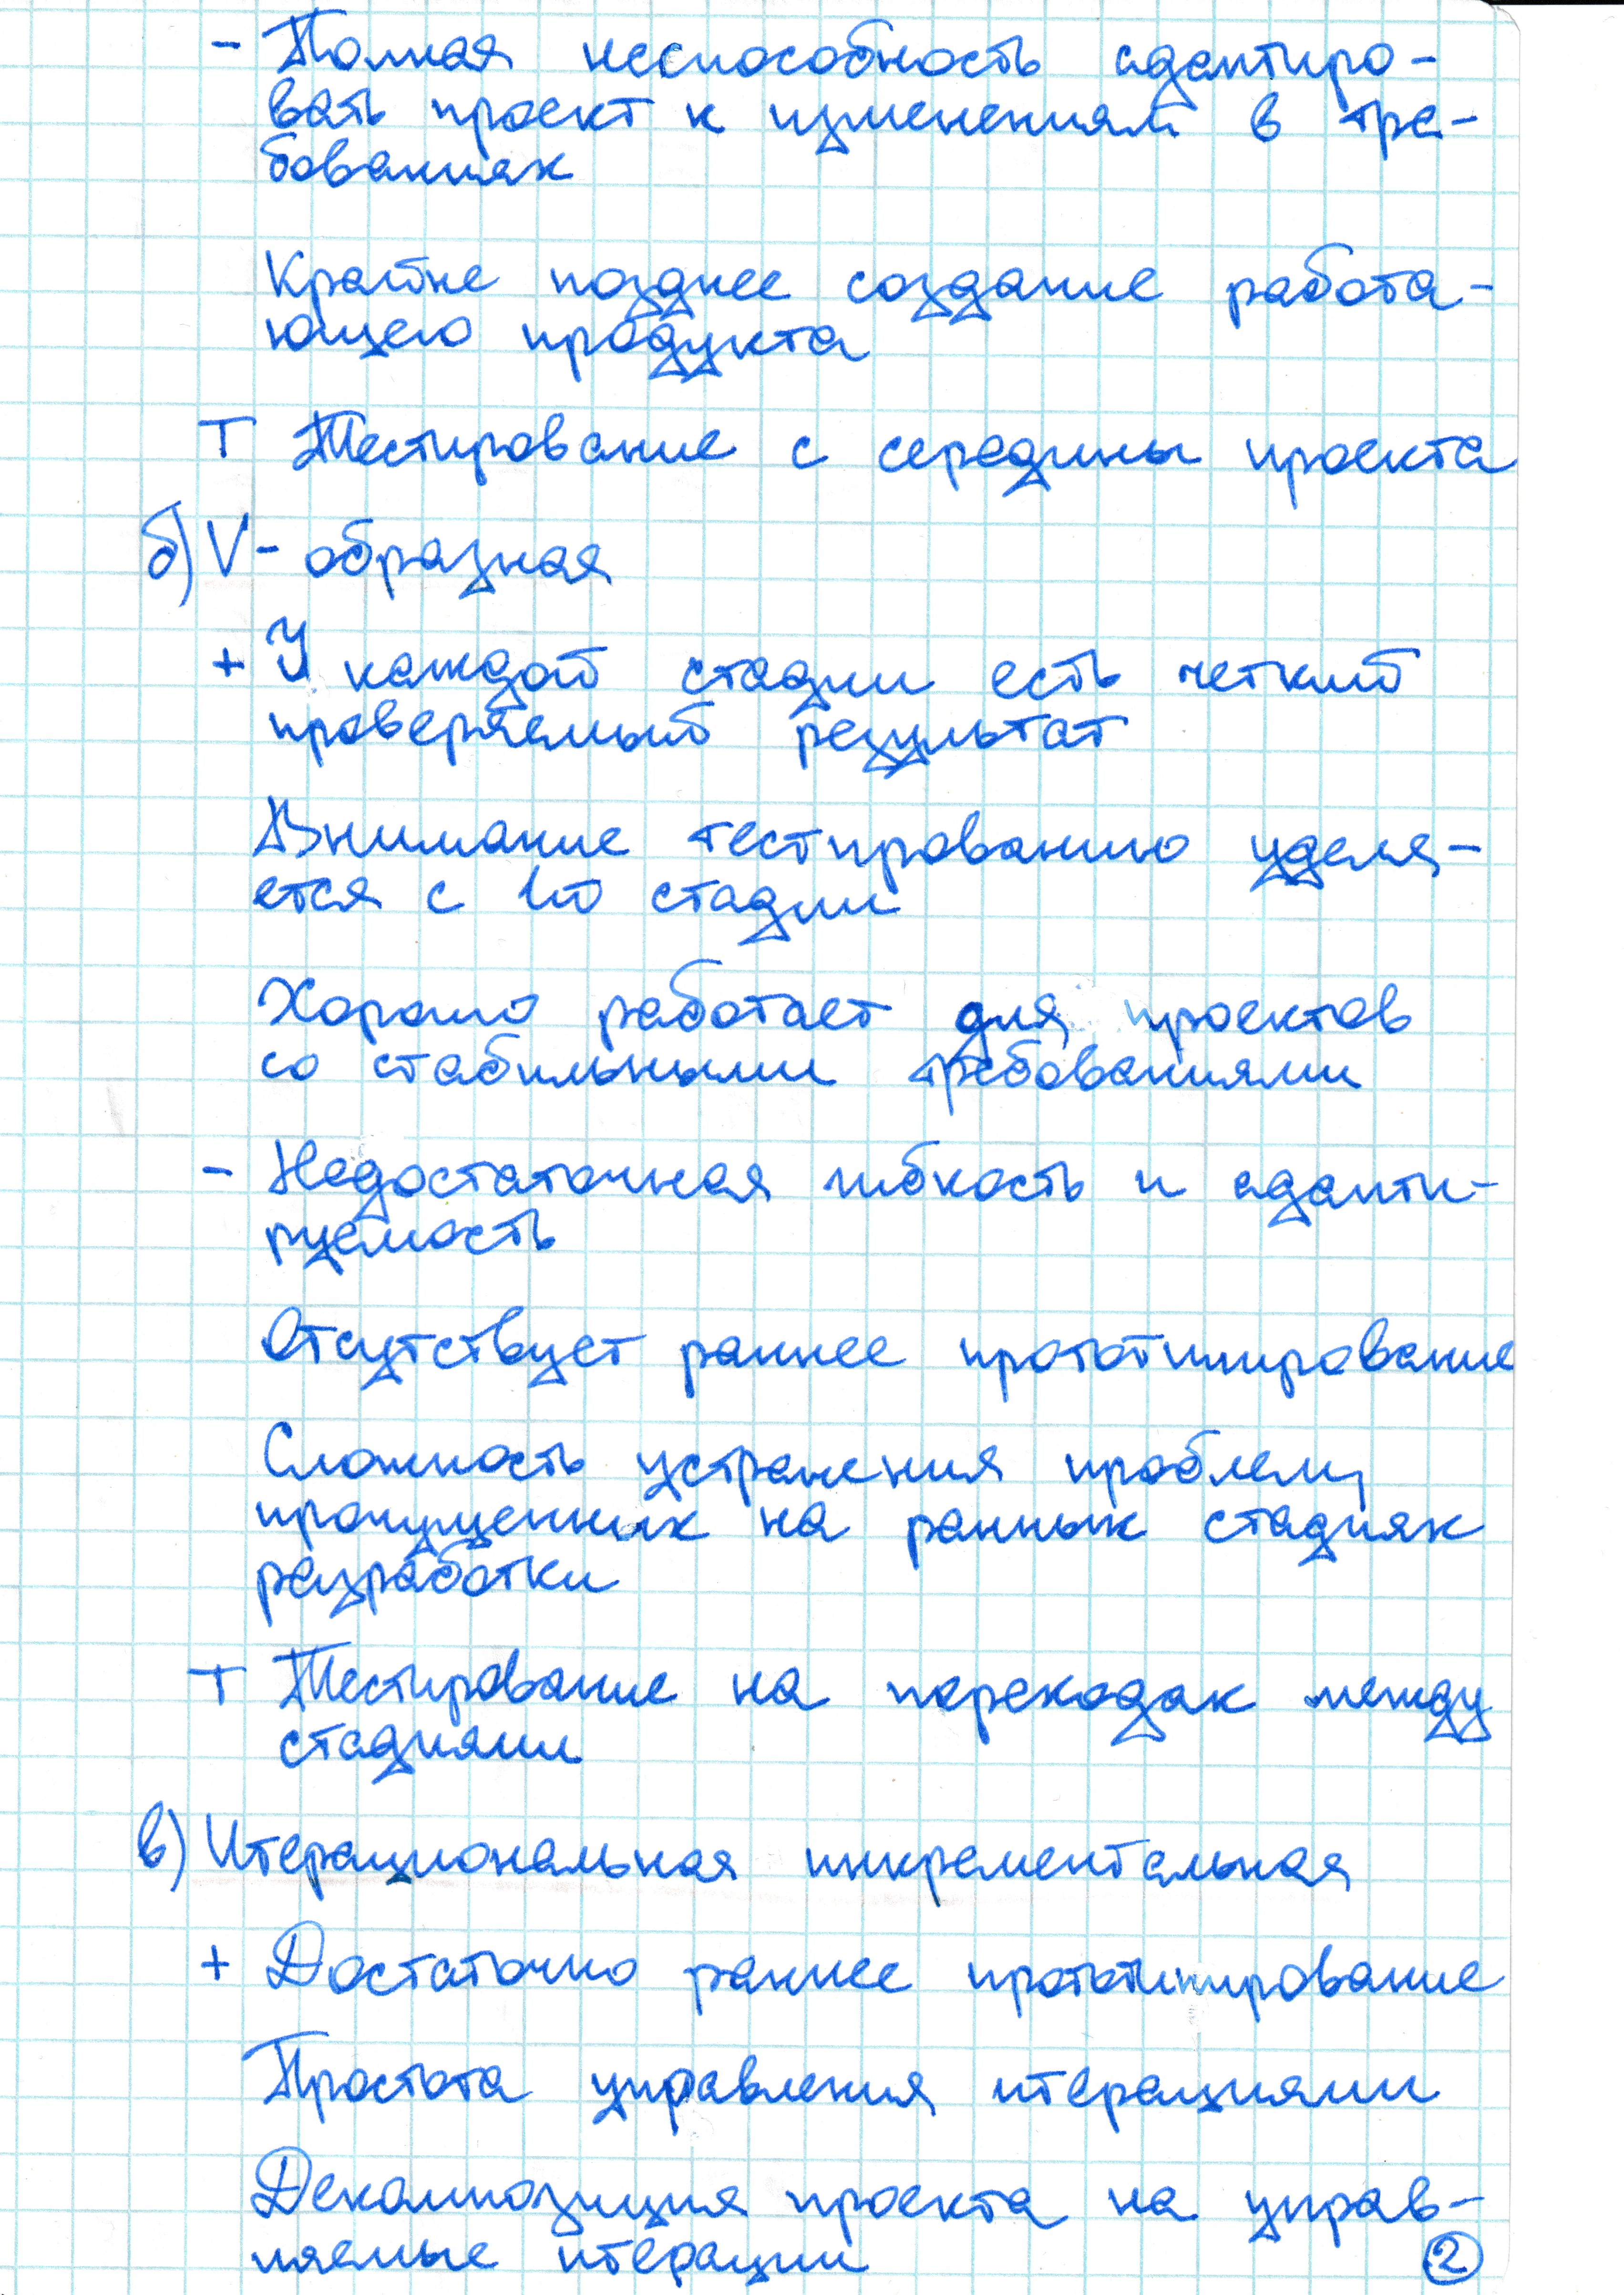 - Полная неспособность адаптиро-
вать проект к изменениям в тре-
бованиях
Крайне позднее создание работа-
ющего продукта
Т Тестирование с середины проекта
б) V- образная
+ У каждой стадии есть четкий
проверяемый результат
Внимание тестированию уделя-
ется с 1й стадии
Хорошо работает для проектов
со стабильными требованиями
- Недостаточная гибкость и адапти-
руемость
Отсутствует раннее прототипирование
Сложность устранения проблем,
пропущенных на ранних стадиях
разработки
Т Тестирование на переходах между
стадиями
в) Итерационная инкрементальная
+ Достаточно раннее прототипирование
Простота управления итерациями
Декомпозиция проекта на управ-
ляемые итерации
2